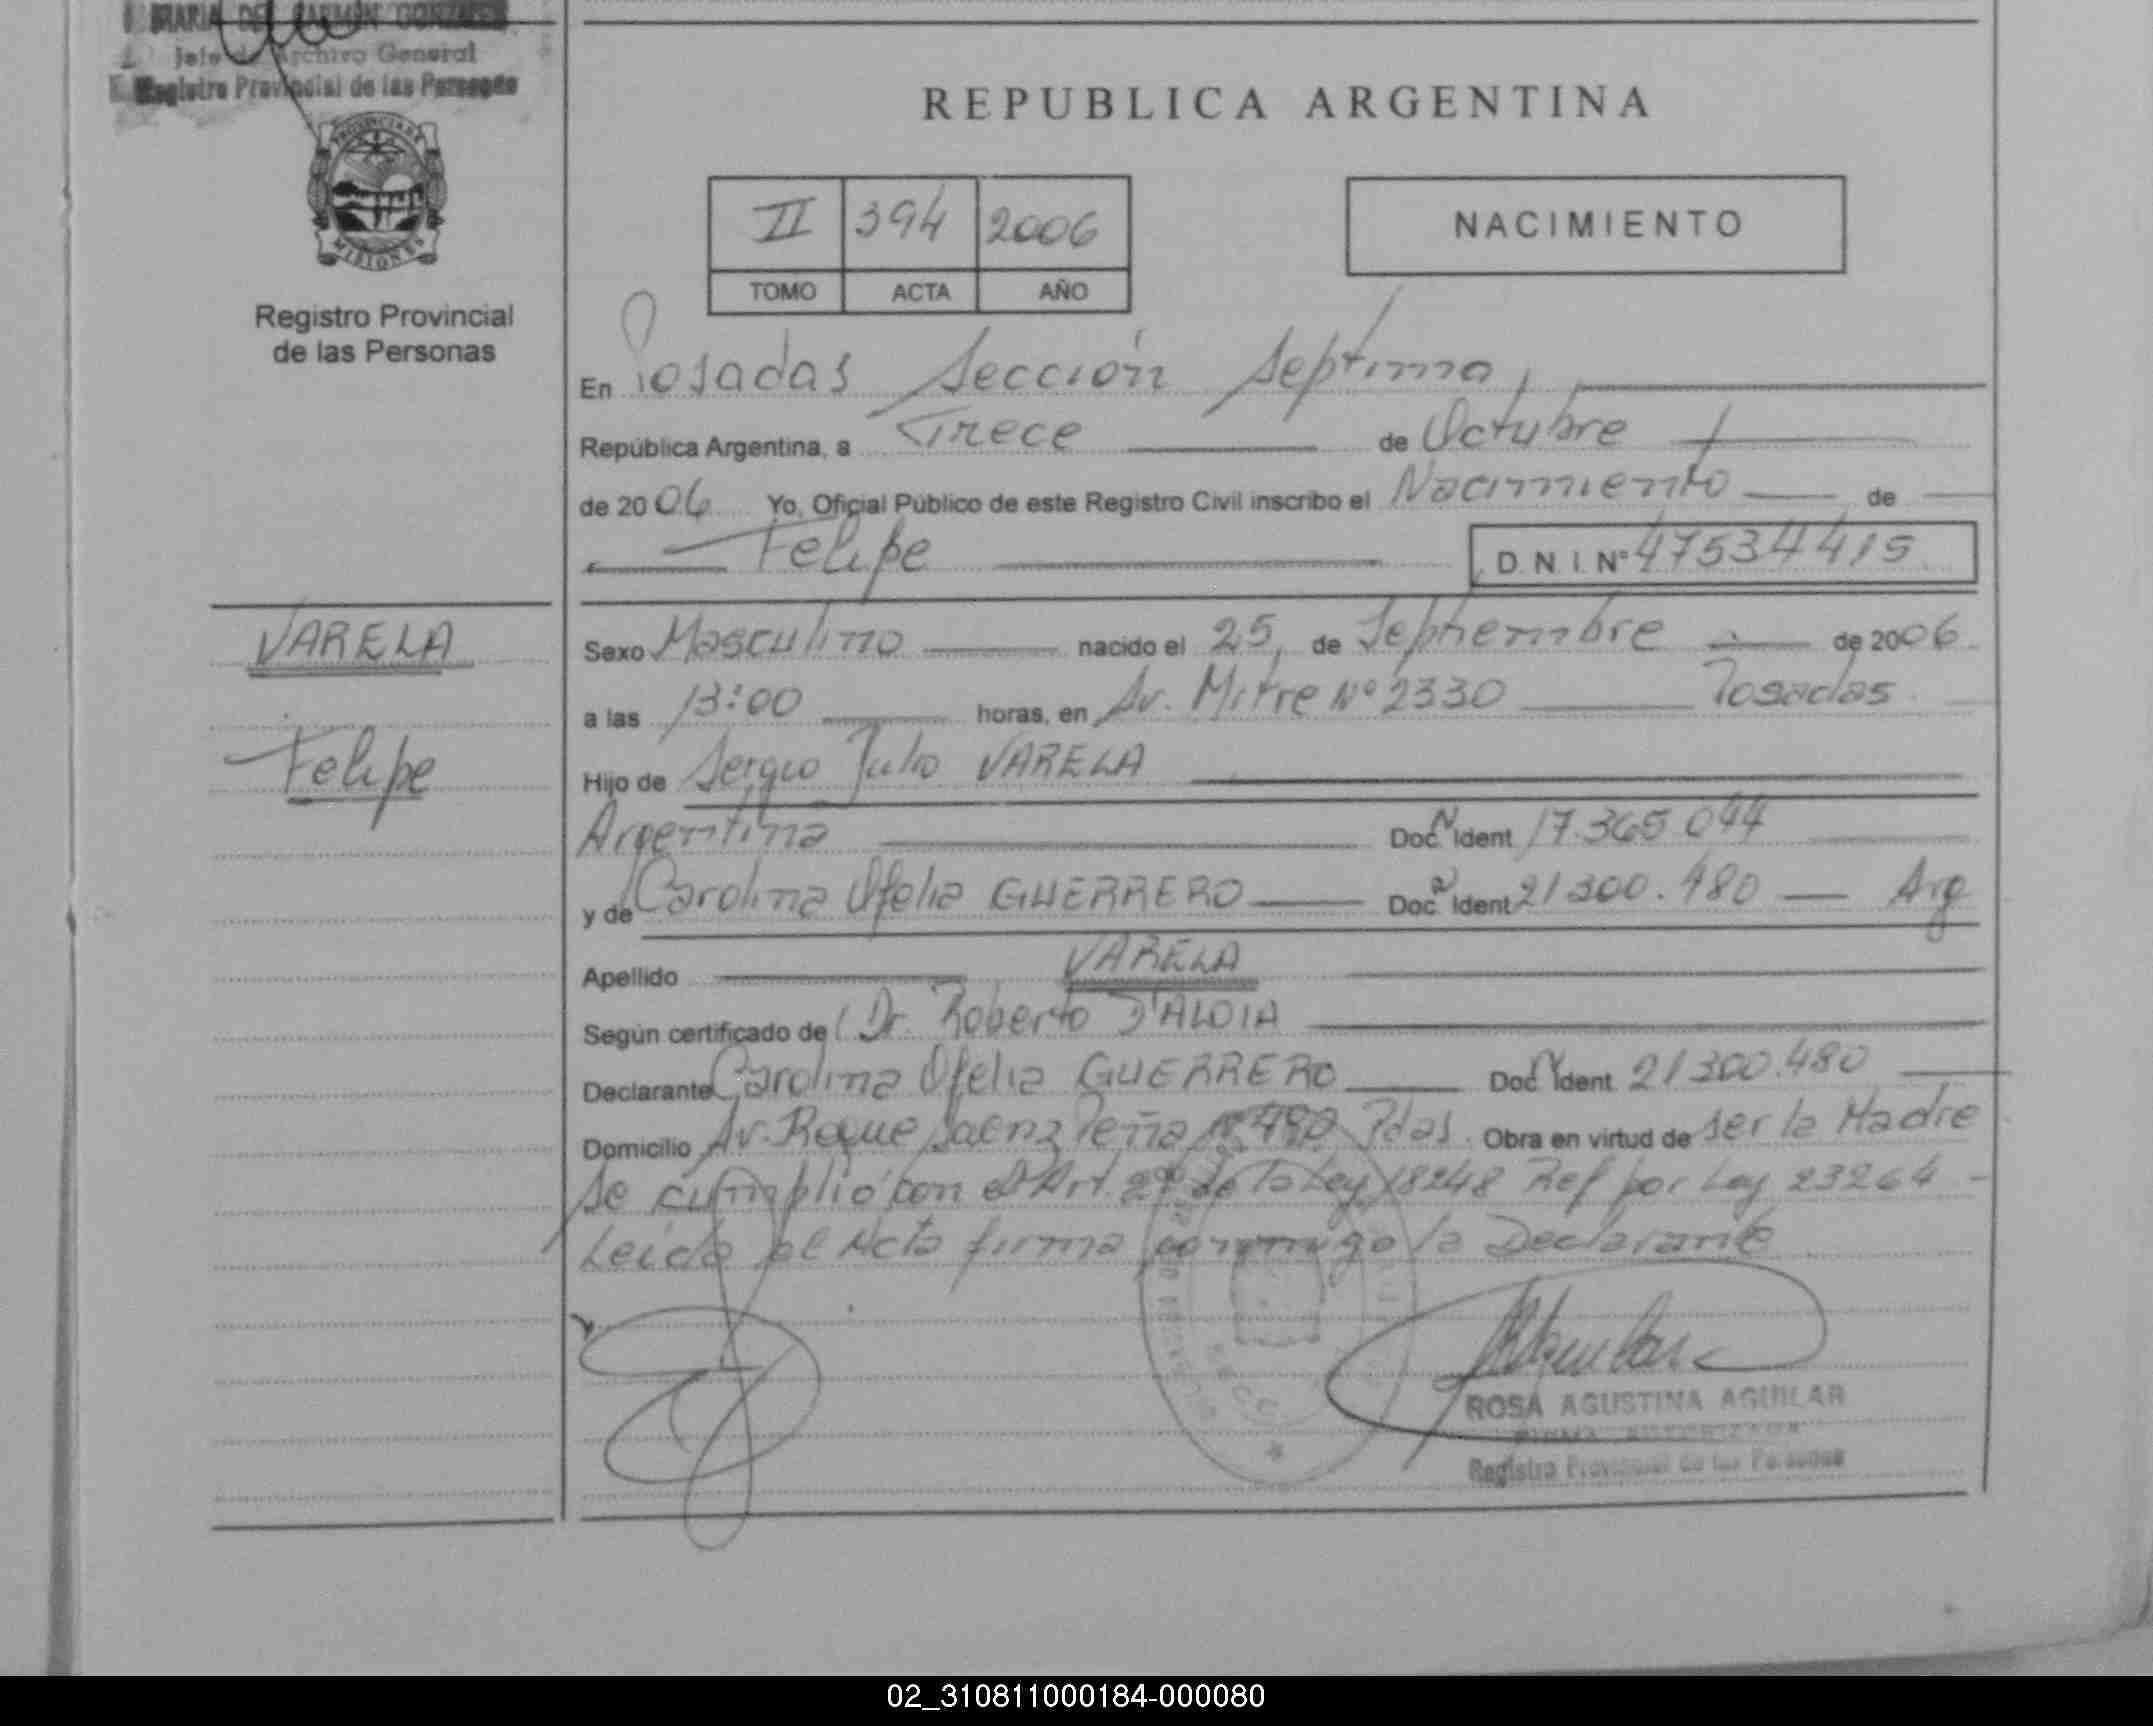 MARIA DEL CARMEN GONZALEZ
Jefe de Archivo General
Registro Provincial de las Personas
PROVINCIA DE
MISIONES
Registro Provincial
de las Personas
REPUBLICA ARGENTINA
II 394 2006
TOMO ACTA AÑO
NACIMIENTO
En Posadas Sección Septima,
República Argentina, a Trece de Octubre
de 2006 Yo, Oficial Público de este Registro Civil inscribo el Nacimiento de
Felipe D. N. I. Nº 47534415
VARELA
Felipe
Sexo Masculino nacido el 25 de Septiembre de 2006
a las 13:00 horas, en Av. Mitre Nº 2330 Posadas
Hijo de Sergio Julio VARELA
Argentina Doc. Ident 17.365.044
y de Carolina Ofelia GUERRERO Doc. Ident 21300.480 Arg
Apellido VARELA
Según certificado de Dr. Roberto D'ALOIA
Declarante Carolina Ofelia GUERRERO Doc. Ident. 21300.480
Domicilio Av. Roque Saenz Peña Nº 490 Pdas. Obra en virtud de ser la Madre
Se cumplió con el Art. 2º de la Ley 18248 Ref por Ley 23264 -
Leida el Acta firma conmigo la Declarante
ROSA AGUSTINA AGUILAR
FIRMA AUTORIZADA
Registro Provincial de las Personas
02_310811000184-000080